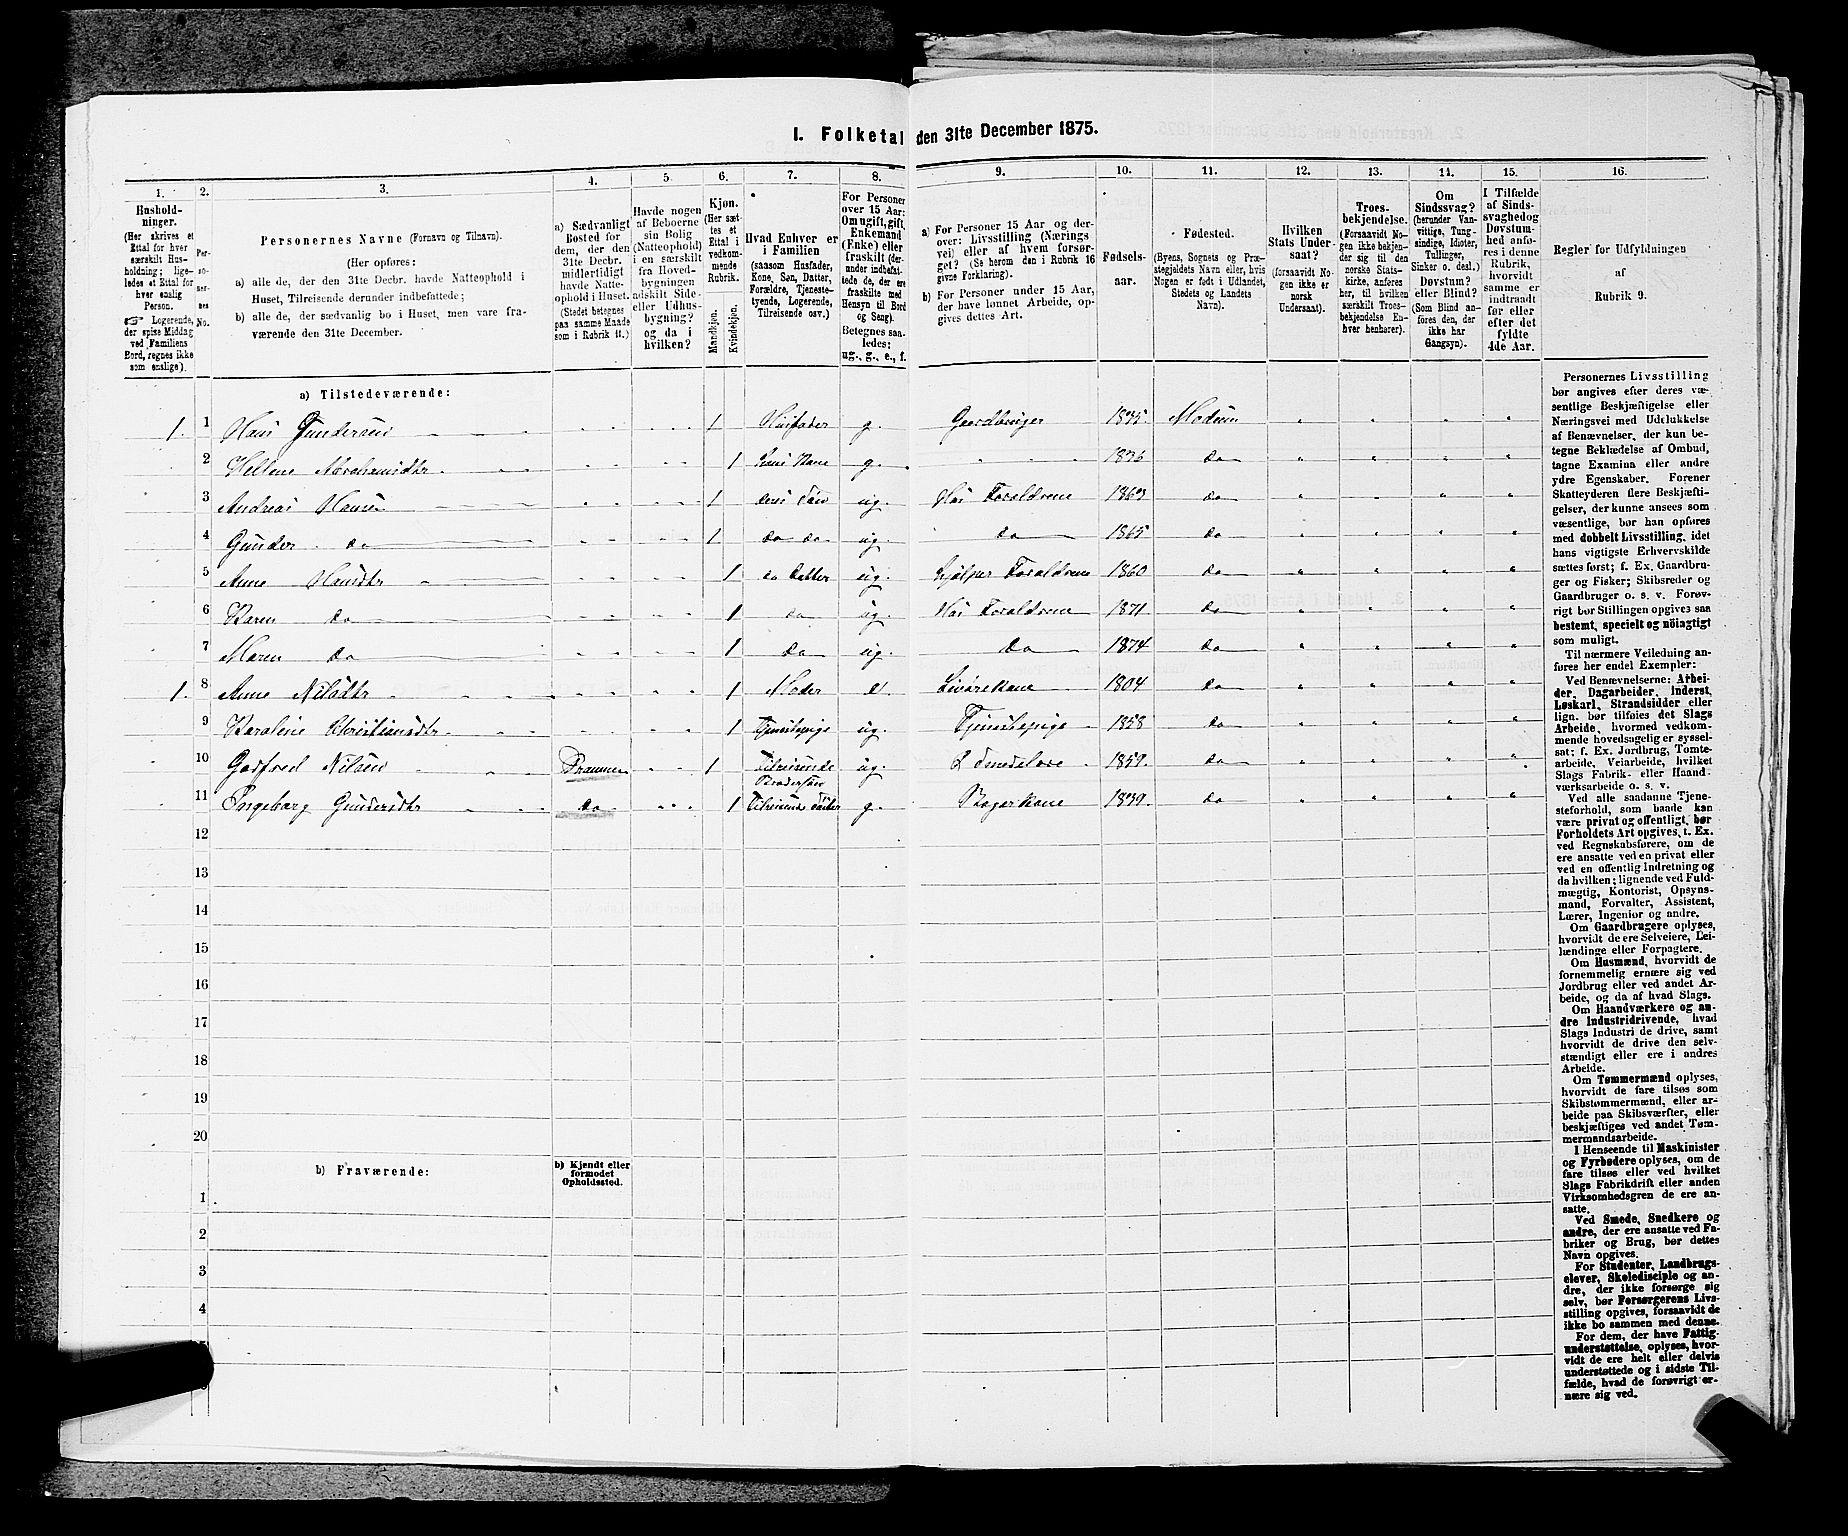 I. Folketal den 31te December 1875.
1.
2.
3.
4.
5.
6.
7.
8.
9.
10.
11.
12.
13.
14.
15.
16.
Hushold-
ninger.
(Her skrives et
Ettal for hver
særskilt Hus-
holdning; lige-
ledes et Ettal for
hver enslig
Person.
☞ Logerende,
der spise Middag
ved Familiens
Bord, regnes ikke
som enslige).
Per-
so-
ner-
nes
No.
Personernes Navne (Fornavn og Tilnavn).
(Her opføres:
a) alle de, der den 31te Decbr. havde Natteophold i
Huset, Tilreisende derunder indbefattede;
b) alle de, der sædvanlig bo i Huset, men vare fra-
værende den 31te December.
a) Sædvanligt
Bosted for
dem, der den
31te Decbr.
midlertidigt
havde Natte-
ophold i Huset.
(Stedet betegnes
paa samme Maade
som i Rubrik 11.)
Havde nogen
af Beboerne
sin Bolig
(Natteophold)
i en særskilt
fra Hoved-
bygningen
adskilt Side-
eller Udhus-
bygning?
og da i
hvilken?
Kjøn.
(Her sæt-
tes et
Ettal i
vedkom-
mende
Rubrik.
Mandkjøn.
Kvindekjøn.
Hvad Enhver er
i Familien
(saasom Husfader,
Kone, Søn, Datter,
Forældre, Tjeneste-
tyende, Logerende,
Tilreisende osv.)
For Personer
over 15 Aar:
Om ugift, gift,
Enkemand
(Enke) eller
fraskilt (der-
under indbefat-
tede de, der ere
fraskilte med
Hensyn til Bord
og Seng).
Betegnes saa-
ledes:
ug., g., e., f.
a) For Personer 15 Aar og der-
over: Livsstilling (Nærings
vei) eller af hvem forsør-
get? (Se herom den i Rubrik 16
givne Forklaring).
b) For Personer under 15 Aar,
der have lønnet Arbeide, op-
gives dettes Art.
Fødsels-
aar.
Fødested.
(Byens, Sognets og Præ-
stegjeldets Navn eller, hvis
Nogen er født i Udlandet,
Stedets og Landets
Navn).
Hvilken
Stats Under-
saat?
(forsaavidt No-
gen ikke er
norsk
Undersaat).
Troes-
bekjendelse.
(Forsaavidt No-
gen ikke bekjen-
der sig til den
norske Stats-
kirke, anføres
her, til hvilken
særskilt Troes-
bekjendelse En-
hver henhører).
Om
Sindssvag?
(herunder Van-
vittige, Tung-
sindige, Idioter,
Tullinger,
Sinker o. desl.)
Døvstum?
eller Blind?
(Som Blind an-
føres den, der
ikke har
Gangsyn).
I Tilfælde
af Sinds-
svaghed og
Døvstum-
hed anfø-
res i denne
Rubrik,
hvorvidt
samme er
indtraadt
før eller
efter det
fyldte
4de Aar.
Regler for Udfyldningen
af
Rubrik 9.
a) Tilstedeværende:
1. 1 Hans Gundersen 1 Husfader g. Gaardbruger 1835 Modum
2 Hellene Abrahamsdtr 1 hans Kone g. 1836 do
3 Andreas Hansen 1 deres Søn ug. Hos Foraldrene 1863 do
4 Gunder do 1 do do ug. do 1865 do
5 Anne Hansdtr 1 do Datter ug. hjelper Foraldrene 1860 do
6 Karen do 1 do ug. Hos Foraldrene 1871 do
7 Maren do 1 do ug. do 1874 do
1. 8 Anne Nilsdtr 1 Moder e. Livørekone 1804 do
9 Karoline Christiansdtr 1 Tjenstepige ug. Tjenstepige 1858 do
10 Godfred Nilsen Drammen 1 Tilreisende Brodersøn ug. 1859 do
11 Ingeborg Gundersdtr do 1 Tilreisende Datter g. Bagerkone 1839 do
12
13
14
15
16
17
18
19
20
b) Fraværende:
b) Kjendt eller
formodet
Opholdssted.
1
2
3
4
Personernes Livsstilling
bør angives efter deres væ-
sentlige Beskjæftigelse eller
Næringsvei med Udelukkelse
af Benævnelser, der kun be-
tegne Beklædelse af Ombud,
tagne Examina eller andre
ydre Egenskaber. Forener
Skatteyderen flere Beskjæfti-
gelser, der kunne ansees som
væsentlige, bør han opføres
med dobbelt Livsstilling, idet
hans vigtigste Erhvervskilde
sættes først; f. Ex. Gaardbru-
ger og Fisker; Skibsreder og
Gaardbruger o. s. v. Forøv-
rigt bør Stillingen opgives saa
bestemt, specielt og nøiagtigt
som muligt.
Til nærmere Veiledning an-
føres her endel Exempler:
Ved Benævnelserne: Arbei-
der, Dagarbeider, Inderst,
Løskarl, Strandsidder eller
lign. bør tilføies det Slags
Arbeide, hvormed vedkom-
mende hovedsagelig er syssel-
sat; f. Ex. Jordbrug, Tomte-
arbeide, Veiarbeide, hvilket
Slags Fabrik- eller Haand-
værksarbeide o. s. v.
Ved alle saadanne Tjene-
steforhold, som baade kan
være privat og offentligt, bør
Forholdets Art opgives, t. Ex.
ved Regnskabsførere, om de
ere ansatte ved en privat eller
ved en offentlig Indretning og
da hvilken; lignende ved Fuld-
mægtig, Kontorist, Opsyns-
mand, Forvalter, Assistent,
Lærer, Ingeniør og andre.
Om Gaardbrugere oplyses,
hvorvidt de ere Selveiere, Lei-
lændinge eller Forpagtere.
Om Husmænd, hvorvidt de
fornemmelig ernære sig ved
Jordbrug eller ved andet Ar-
beide, og da af hvad Slags.
Om Haandværkere og an-
dre Industridrivende, hvad
Slags Industri de drive, samt
hvorvidt de drive den selv-
stændigt eller ere i andres
Arbeide.
Om Tømmermænd oplyses,
hvorvidt de fare tilsøs som
Skibstømmermænd, eller ar-
beide paa Skibsværfter, eller
beskjæftiges ved andet Tøm-
mermandsarbeide.
I Henseende til Maskinister
og Fyrbødere oplyses, om de
fare tilsøs eller ved hvilket
Slags Fabrikdrift eller anden
Virksomhedsgren de ere an-
satte.
Ved Smede, Snedkere og
andre, der ere ansatte ved Fa-
briker og Brug, bør dettes
Navn opgives.
For Studenter, Landbrugs-
elever, Skoledisciple og an-
dre, der ikke forsørge sig
selv, bør Forsørgerens Livs-
stilling opgives, forsaavidt de
ikke bo sammen med denne.
For dem, der have Fattig-
understøttelse, oplyses, hvor-
vidt de ere helt eller delvis
understøttede og i sidste Til-
fælde, hvad de forøvrigt er-
nære sig ved.